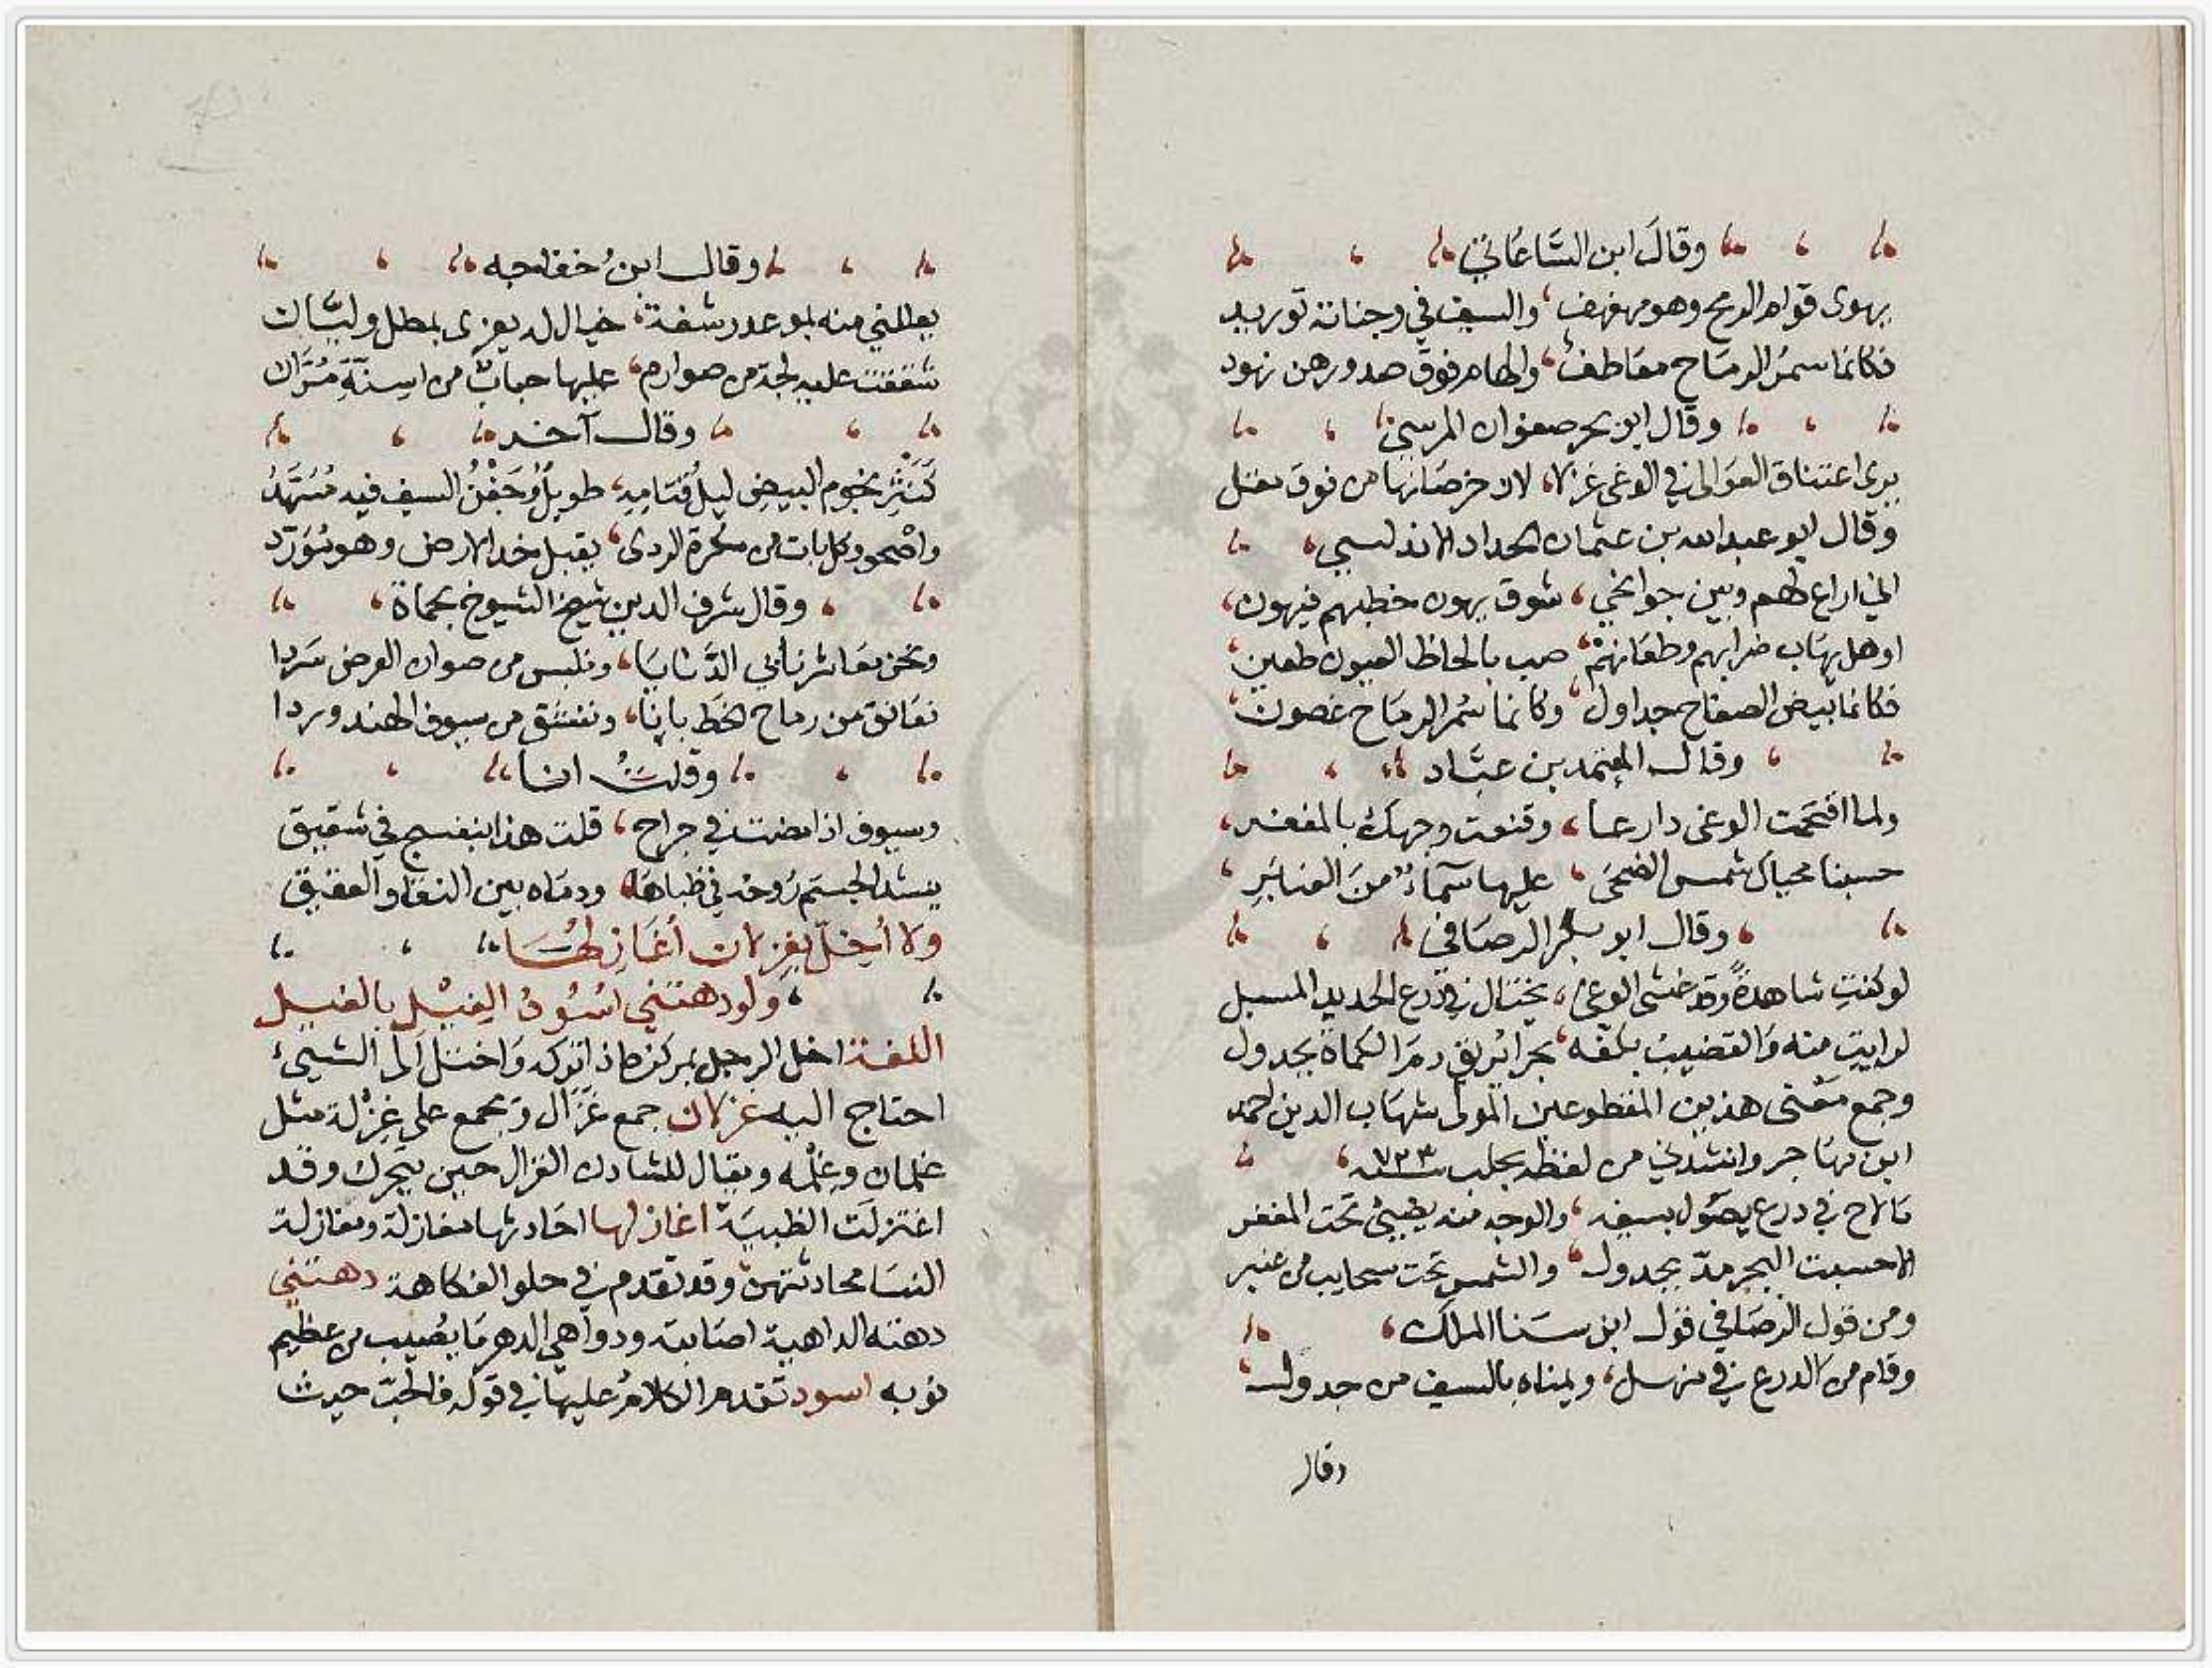 وقالَ ابن السَّاعَاتي
يهوى قوام الرمح وهو مهفهف، والسيف في وجناته توريد
فكانما سمرُ الرمَاح معَاطف، والهام فوق صدورهن نهود
وقال ابن بحر صفوان المرسي
يرى اعتناق العوالي في الوغى غزلا، لان خرصانها من فوق مقل
وقال ابو عبد الله بن عثمان الحداد الاندلسي،
اني اراع لهم وبين جوانحي، شوق يهون خطبهم فيهون،
او هل يهَاب ضرابهم وطعَانهمْ، صب بالحاظ العيون طعين،
فكانما بيض الصفاح جداول، وكانما سُمر الرمَاح غصون،
وقال المعتمد بن عبَّاد
ولما اقتحمت الوغى دارعا، وقنعت وجهك بالمغفر،
حسبنا محياك شمس الضحَى، عليها سَمآءٌ منَ العنبَرِ،
وقال ابو بكر الرصَافي
لو كنتِ شاهدةً وقد غشى الوغى، يختال في درع الحديد المسبل
لرايتِ منه وَالقضيبُ بكفه، بحرا يُريق دمَ الكماة بجدول
وجمع معْنى هذين المقطوعين المولى شهَاب الدين احمد
ابن مهَاجر وانشدني من لفظه بحلب سنة ٧٣٣،
مَا لاح في درع يصُول بسيفه، والوجه منه يضيئ تحت المغفر
الا حسبت البحر مدّ بجدول، والشمس تحت سحايب من عنبر
ومن قول الرصَافي قول ابن سَنا الملك،
وقام من الدرع في منهل، ويمناه بالسيف من جدول،
وقال
وقال ابنُ خفاجه
يعللني منه بموعد رشفة، خيال له يغرى بمطل وليَّان
شققت عليه لجة من صوارم، عليها حبابٌ من اسِنّةِ مُرَّان
وقال آخر
كَنَثْرِ نجوم البيضِ ليلُ قتامِهِ، طويلٌ وَجَفْنُ السيف فيه مُسَهَّدُ
واضحو وكل بات من سكرة الردى، يقبل خد الارض وهو مُوَرّد
وقال شرف الدين شيخ الشيوخ بحماة،
ونحن معَاشر نابي الدَّنايَا، ونلبس من صوان العرض سَردا
نعَانق من رماح الخط بانا، وننشق من سيوف الهند وردا
وقلتُ انا
وسيوف اذا مضت في جراح، قلت هذا بنفسج في شقيق
ينشد الجسم رُوحه في ظباهَا، ودمَاه بين النقا والعقيق
ولا أُخِلّ بغِزلان أغَازِلهُا
ولو دهتني اسُودُ الغِيْلِ بالغيل
اللغة اخل الرجل بمركزه اذا تركه وَاختل الى الشيئ
احتاج اليه غزلان جمع غَزَال وتجمع على غِزْلة مثل
غلمان وغِلْمه ويقال للشادن الغزال حين يتحرك وقد
اغتزلَت الظبيَة اغازلها احَادثها مغازلة ومغازلة
النسَا محادثتهن وقد تقدم في حلو الفكاهة دهتني
دهته الداهية اصَابته ودواهي الدهر مَا يُصيب من عظيم
نوبه اسود تقدم الكلامُ عليها في قوله فالحبّ حيث